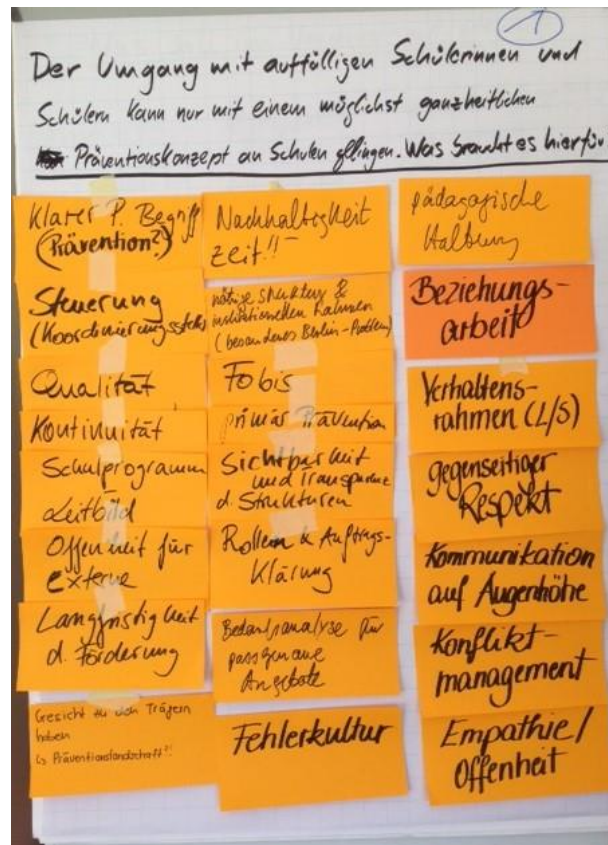 1
Der Umgang mit auffälligen Schülerinnen und
Schülern kann nur mit einem möglichst ganzheitlichen
Präventionskonzept an Schulen gelingen. Was braucht es hierfür
Klarer P. Begriff
(Prävention?)
Steuerung
(Koordinierungsstelle)
Qualität
Kontinuität
Schulprogramm
Leitbild
Offenheit für
Externe
Langfristigkeit
d. Förderung
Gesicht zu den Trägern
haben
↳ Präventionslandschaft?!
Nachhaltigkeit
Zeit!!
nötige Struktur &
institutionellen Rahmen
(besonderes Berlin-Problem)
Fobis
primär Prävention
Sichtbarkeit
und Transparenz
d. Strukturen
Rollen & Auftrags-
Klärung
Bedarfsanalyse für
passgenaue
Angebote
Fehlerkultur
pädagogische
Haltung
Beziehungs-
arbeit
Verhaltens-
rahmen (L/S)
gegenseitiger
Respekt
Kommunikation
auf Augenhöhe
Konflikt-
management
Empathie/
Offenheit